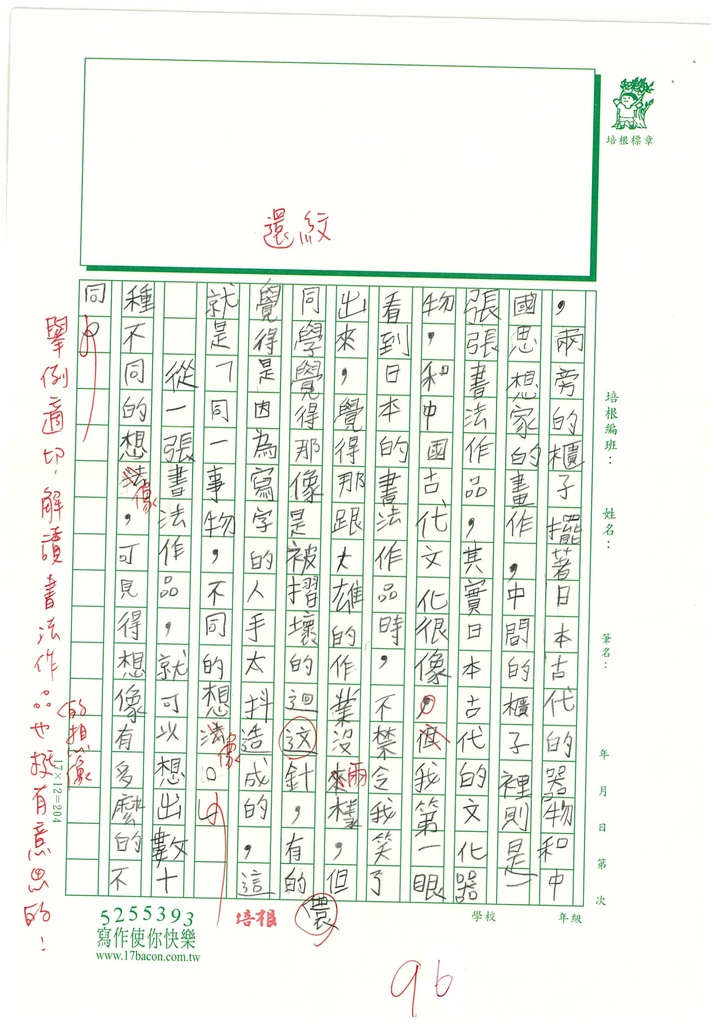 培根標章
還紋
培根編班：
姓名：
筆名：
年 月 日 第 次
，兩旁的櫃子擺著日本古代的器物和中
國思想家的畫作，中間的櫃子裡則是一
張張書法作品，其實日本古代的文化器
物，和中國古代文化很像，但我第一眼
看到日本的書法作品時，不禁令我笑了
出來，覺得那跟大雄的作業沒兩樣，但
同學覺得那像是被摺壞的迴紋針，有的還
覺得是因為寫字的人手太抖造成的，這
就是「同一事物，不同的想像。
從一張書法作品，就可以想出數十
種不同的想像，可見得想像有多麼的不
同
的想像
舉例適切，解讀書法作品也挺有意思的！
17×12=204
5255393
寫作使你快樂
www.17bacon.com.tw
培根
學校
年級
96